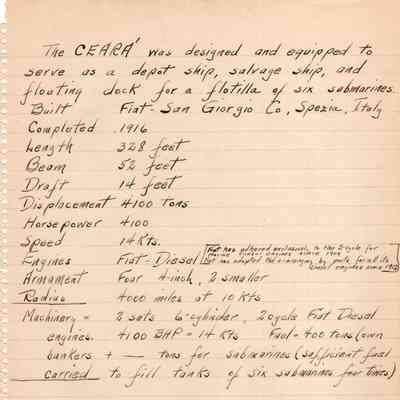 The CEARÁ was designed and equipped to
serve as a depot ship, salvage ship, and
floating dock for a flotilla of six submarines.
Built Fiat-San Giorgio Co, Spezia, Italy
Completed 1916
Length 328 feet
Beam 52 feet
Draft 14 feet
Displacement 4100 Tons
Horsepower 4100
Speed 14 Kts.
Engines Fiat-Diesel
Fiat has adhered exclusively to the 2 cycle for
marine Diesel engines since
It has adopted the scavenging by ports for all its
Diesel engines since
Armament Four 4-inch, 2 smaller
Radius 4000 miles at 10 Kts
Machinery = 2 sets 6-cylinder, 2 cycle Fiat Diesel
engines. 4100 BHP = 14 Kts Fuel = 400 tons (own
bunkers + — tons for submarines (sufficient fuel
carried to fill tanks of six submarines four times)